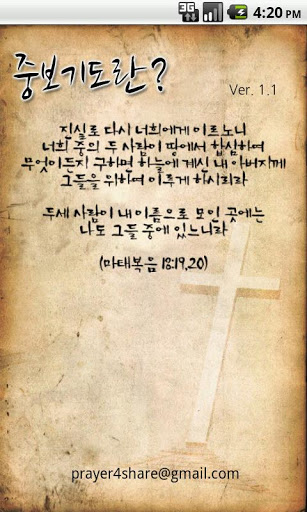 3G
4:20 PM
중보기도란?
Ver. 1.1
진실로 다시 너희에게 이르노니
너희 중의 두 사람이 땅에서 합심하여
무엇이든지 구하면 하늘에 계신 내 아버지께서
그들을 위하여 이루게 하시리라
두세 사람이 내 이름으로 모인 곳에는
나도 그들 중에 있느니라
(마태복음 18:19,20)
prayer4share@gmail.com